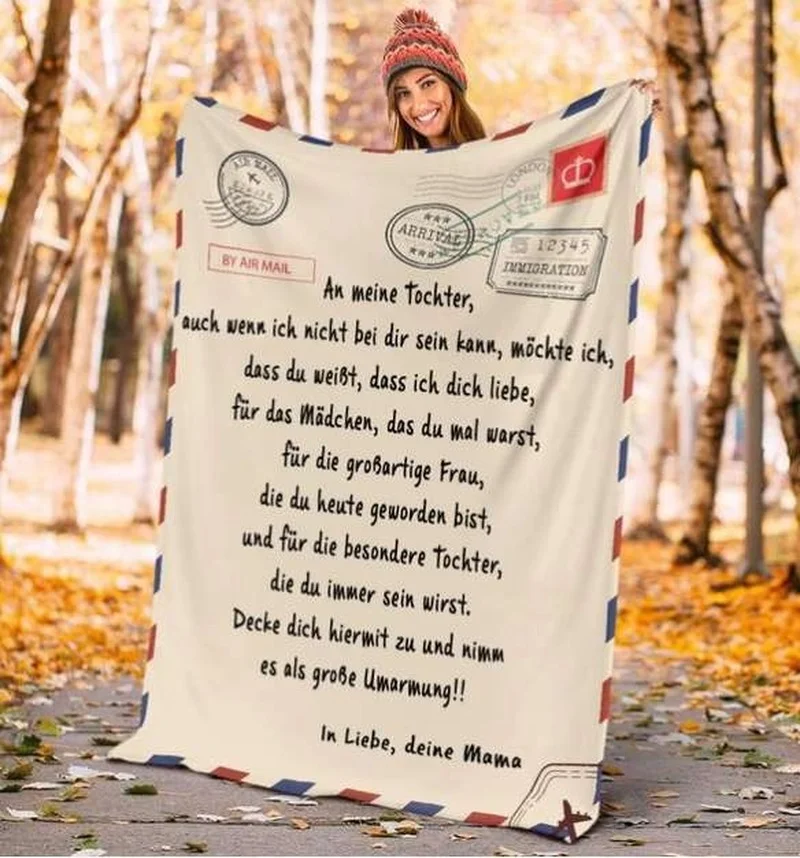 AIR MAIL
LONDON
ARRIVAL
12345
IMMIGRATION
BY AIR MAIL
An meine Tochter,
auch wenn ich nicht bei dir sein kann, möchte ich,
dass du weißt, dass ich dich liebe,
für das Mädchen, das du mal warst,
für die großartige Frau,
die du heute geworden bist,
und für die besondere Tochter,
die du immer sein wirst.
Decke dich hiermit zu und nimm
es als große Umarmung!!
In Liebe, deine Mama